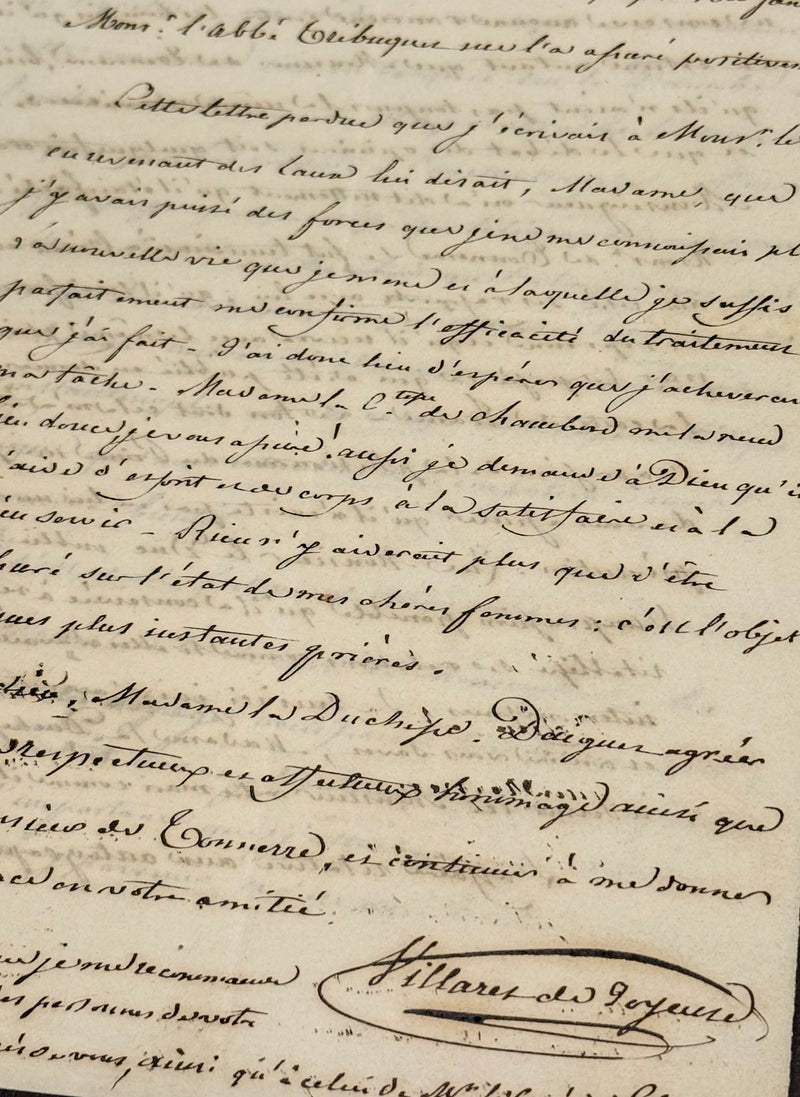 Mons.r l'abbé Trébuquet me l'a assuré positivem
Cette lettre perdue que j'écrivais à Mons.r le
en revenant des Eaux lui disait, Madame, que
j'y avais puisé des forces que je ne me connoissais pl
la nouvelle vie que je mene et à laquelle je suffis
parfaitement me confirme l'efficacité du traitement
que j'ai fait – J'ai donc lieu d'espérer que j'acheverai
ma tâche – Madame la C.tesse de Chambord me la rend
ien douce je vous assure! aussi je demande à Dieu qu'i
m'aide d'esprit et de corps à la satisfaire et à la
ien servir – Rien n'y aiderait plus que d'être
suré sur l'état de mes chères femmes: c'est l'objet
mes plus instantes prières.
Madame la Duchesse. Daignez agréer
respectueux et affectueux hommage ainsi que
nsieur de Tonnerre, et continuer à me donner
ace en votre amitié.
Villaret de Joyeuse
ue je me recommande
des personnes de votre
rès de vous, ainsi qu'à celui de